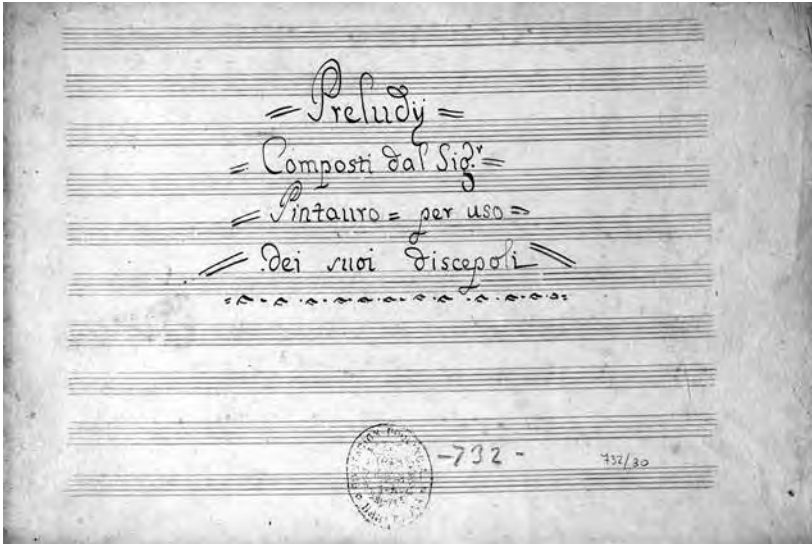 = Preludÿ =
= Composti dal Sig.r =
= Pintauro = per uso =
= dei suoi discepoli =
-732-
732/30